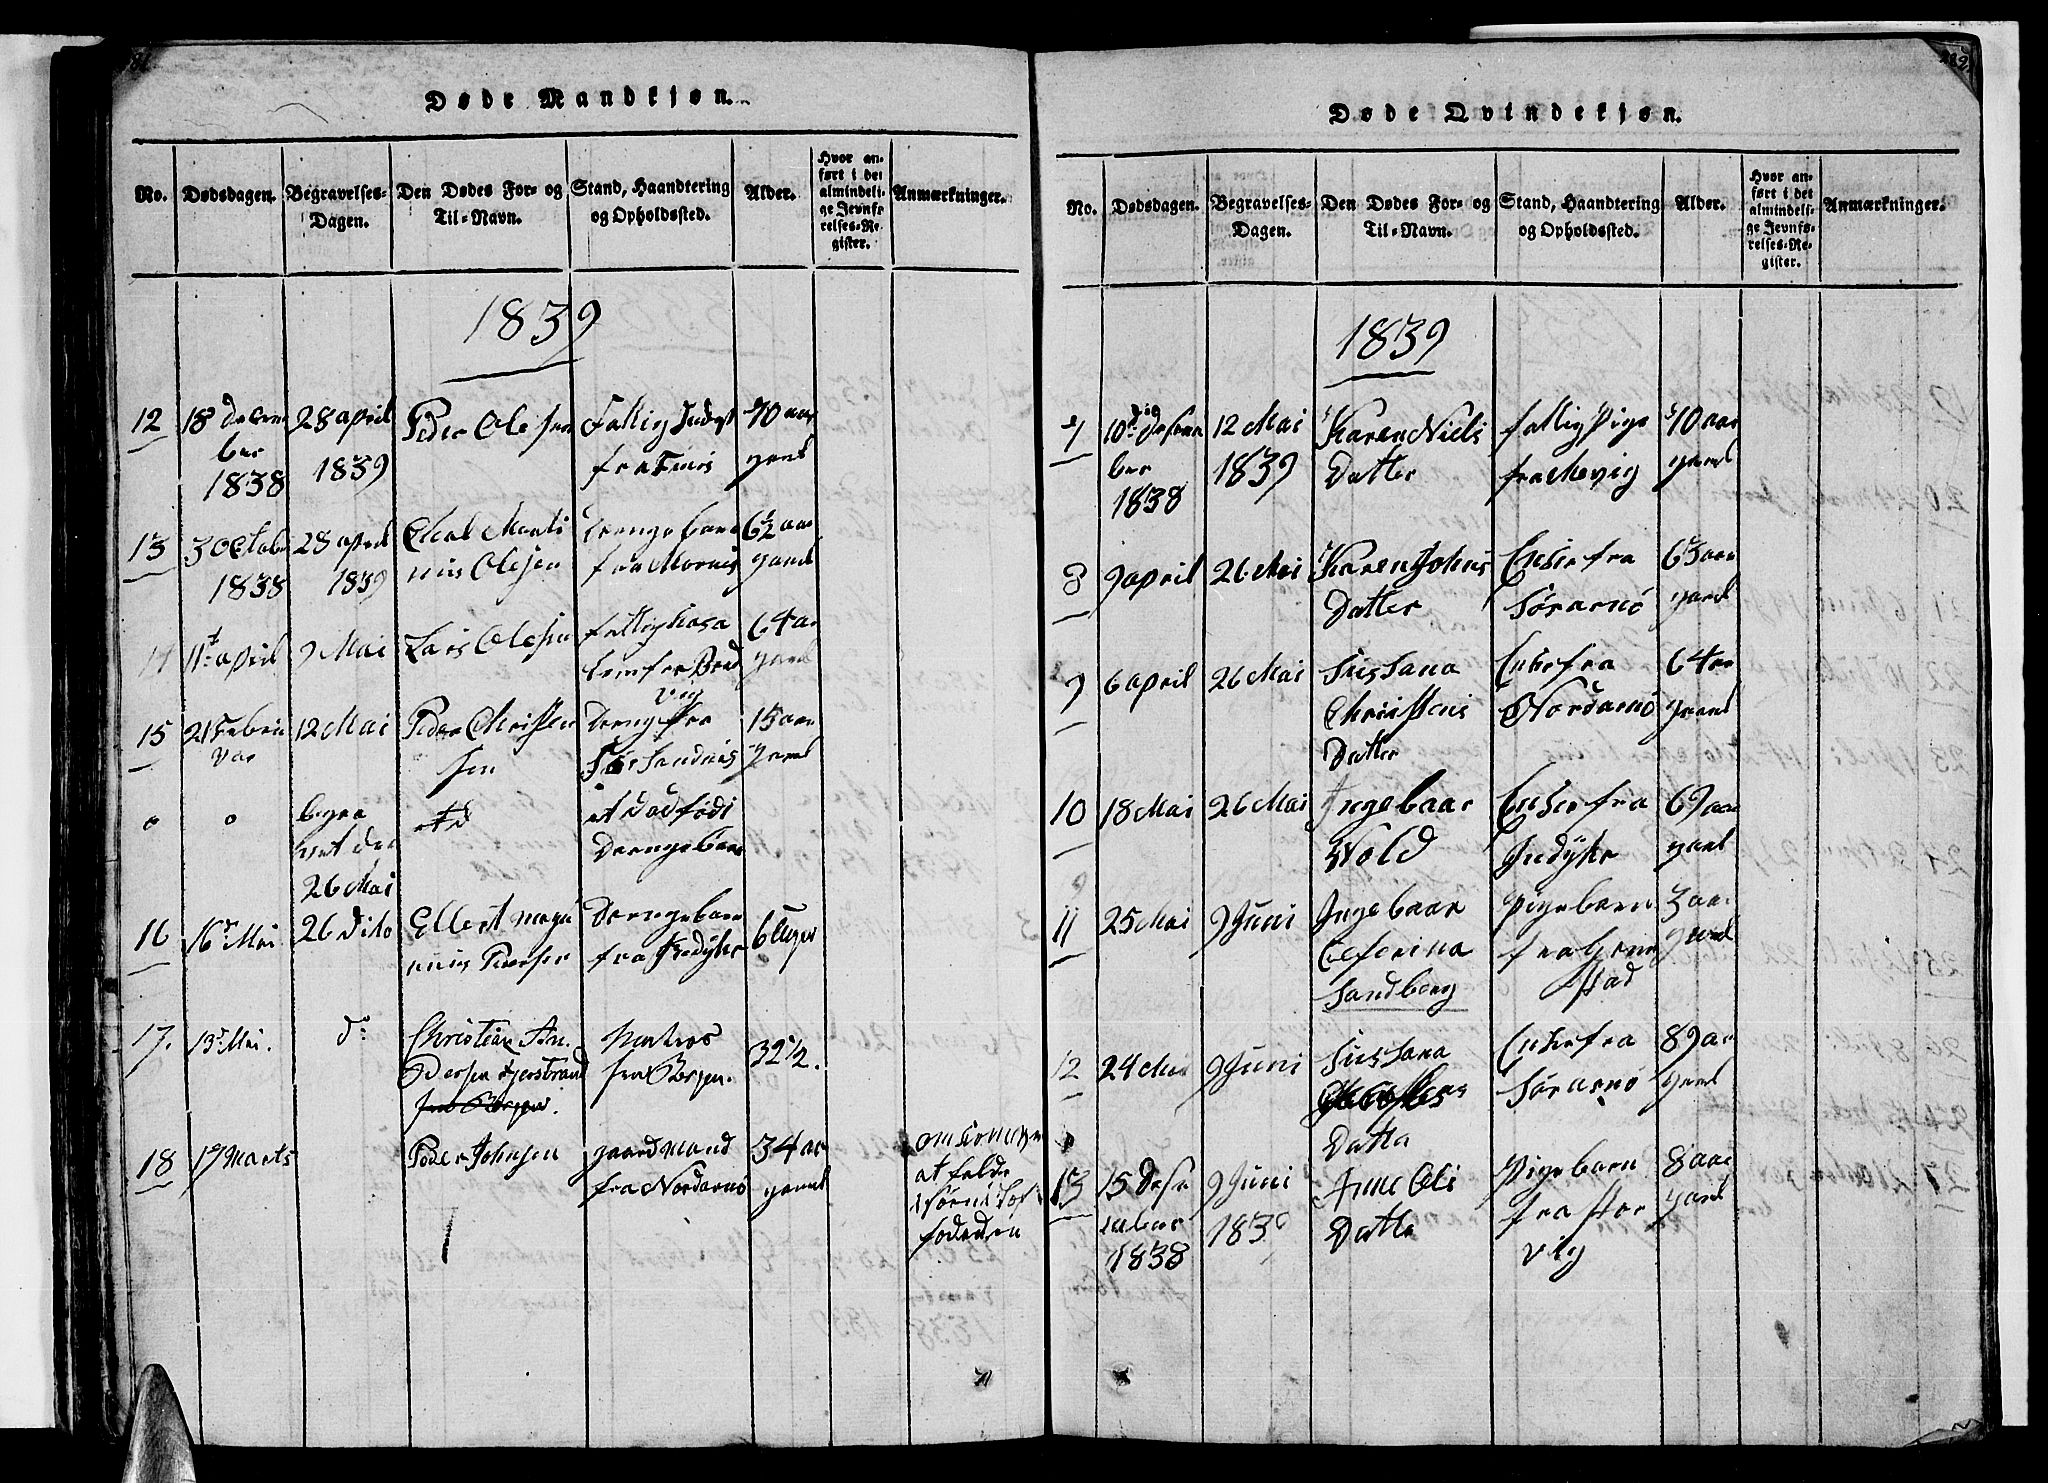 Døde Mandkjøn.
No.
Dødsdagen.
Begravelses-
Dagen.
Den Dødes For- og
Til-Navn.
Stand, Haandtering
og Opholdssted.
Alder.
Hvor an-
ført i det
almindeli-
ge Jevnfø-
relses-Re-
gister.
Anmærkninger.
1839
12
18 decem
ber
1838
28 april
1839
Peder Olesen
Fattig
fra
70 aar
gaml
13
3 October
1838
28 april
1839
Marti
nus Olesen
Drengebarn
fra Mornes
6½ aar
gaml
11t april
9 Mai
Lars Olesen
fra
64 aar
gaml
15
21 Febru
var
12 Mai
Peder Christen
sen
Dreng fra
Sør Sandnes
15 aar
gaml
begra
vet den
26 Mai
et dødfødt
Drengebarn
16
16de Mai
26 dito
Ellert Magn
nus Pedersen
Drengebarn
fra Indyhr
6 Uger
17.
13de Mai.
do
Christian An-
dersen Fjerstrand
fra Bergen.
Matros
fra Bergen.
32½.
18
19 Marts
Peder Johnsen
gaardmand
fra Nordarnø
34 aar
gaml
omkommen
at
Døde Qvindekjøn.
No.
Dødsdagen.
Begravelses-
Dagen.
Den Dødes For- og
Til-Navn.
Stand, Haandtering
og Opholdssted.
Alder.
Hvor an-
ført i det
almindeli-
ge Jevnfø-
relses-Re-
gister.
Anmærkninger.
1839
7
10de desem
ber
1838
12 Mai
1839
Karen Niels
Datter
fattig Pige
fra Mevig
70 aar
gaml
8
9 april
26 Mai
Karen Johns
Datter
Enke fra
Sørarnø
65 aar
gaml
9
6 april
26 Mai
Sussana
Christens
Datter
Enke fra
Nordarnø
64 aar
gaml
10
18 Mai
26 Mai
Ingebaar
Wold
Enke fra
Indyhr
69 aar
gaml
11
25 Mai
9 Juni
Ingebaar
Seferina
Sandberg
Pigebarn
fra
stad
3 aar
gaml
12
24 Mai
9 Juni
Sussana
Datter
Enke fra
Sørarnø
89 aar
gaml
13
15 dese
mber
1838
9 Juni
1839
Anne Ols
Datter
Pigebarn
fra Stor
vig
8 aar
gaml